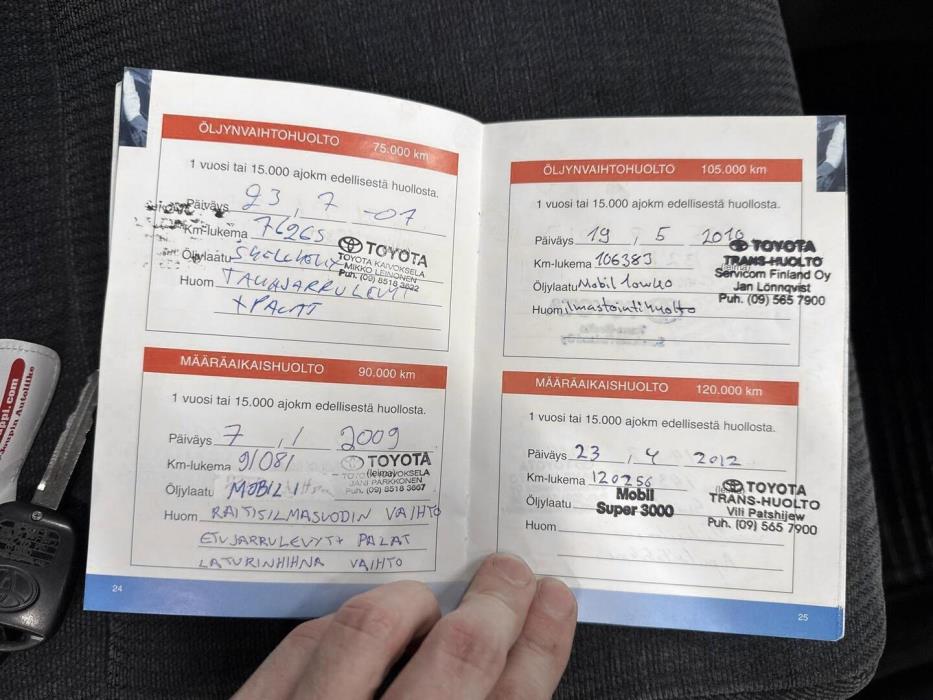 ÖLJYNVAIHTOHUOLTO 75.000 km
1 vuosi tai 15.000 ajokm edellisestä huollosta.
Päiväys 23, 7 -07
Km-lukema 76265
TOYOTA
TOYOTA KAIVOKSELA
MIKKO LEINONEN
Puh. (09) 8518 3622
Öljylaatu
Huom TAKAJARRULEVYT
+ PALAT
MÄÄRÄAIKAISHUOLTO 90.000 km
1 vuosi tai 15.000 ajokm edellisestä huollosta.
Päiväys 7, 1 2009
Km-lukema 91081
TOYOTA
(leima)
JANI PARKKONEN
Puh. (09) 8518 3667
Öljylaatu MOBIL 1
Huom RAITISILMASUODIN VAIHTO
ETUJARRULEVYT+ PALAT
LATURINHIHNA VAIHTO
24
ÖLJYNVAIHTOHUOLTO 105.000 km
1 vuosi tai 15.000 ajokm edellisestä huollosta.
Päiväys 19, 5 2010
Km-lukema 106383
TOYOTA
TRANS-HUOLTO
(leima)
Servicom Finland Oy
Jan Lönnqvist
Puh. (09) 565 7900
Öljylaatu Mobil 10w40
Huom ilmastointihuolto
MÄÄRÄAIKAISHUOLTO 120.000 km
1 vuosi tai 15.000 ajokm edellisestä huollosta.
Päiväys 23, 4 2012
Km-lukema 120256
(leima)
TOYOTA
TRANS-HUOLTO
Vili Patshijew
Puh. (09) 565 7900
Öljylaatu Mobil
Super 3000
Huom
25
ppi.com
Joupin Autoliike